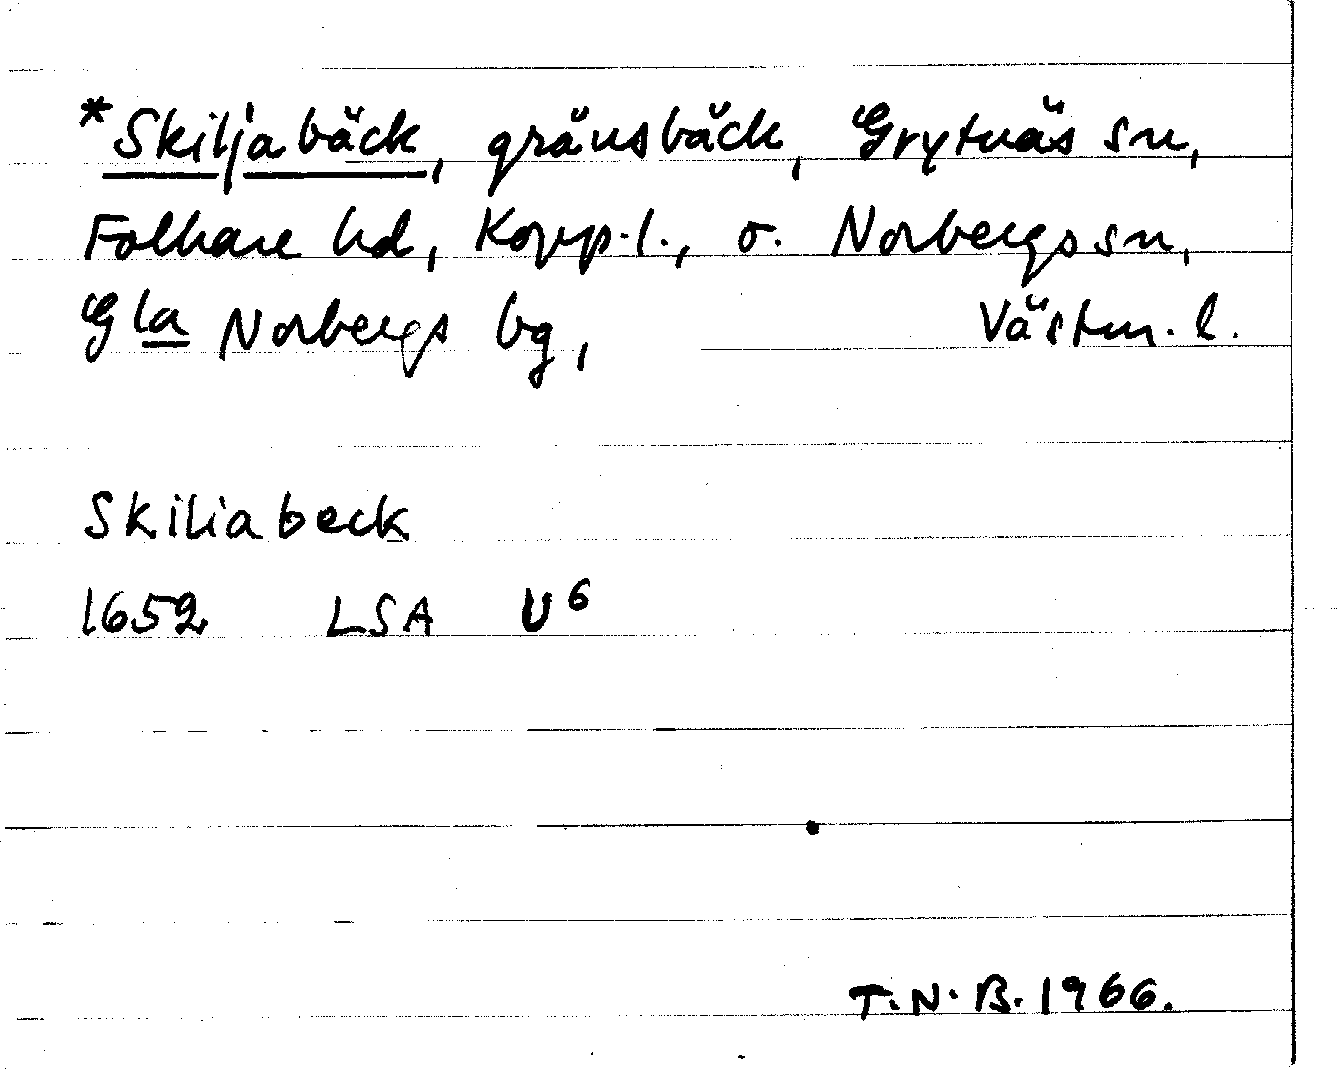 *Skiljabäck, gränsbäck, Grytnäs sn,
Folkare hd, Kopp.l., o. Norbergs sn,
Gla Norbergs bg, Västm.l.
Skiliabeck
1652 LSA U6
T.N.B.1966.